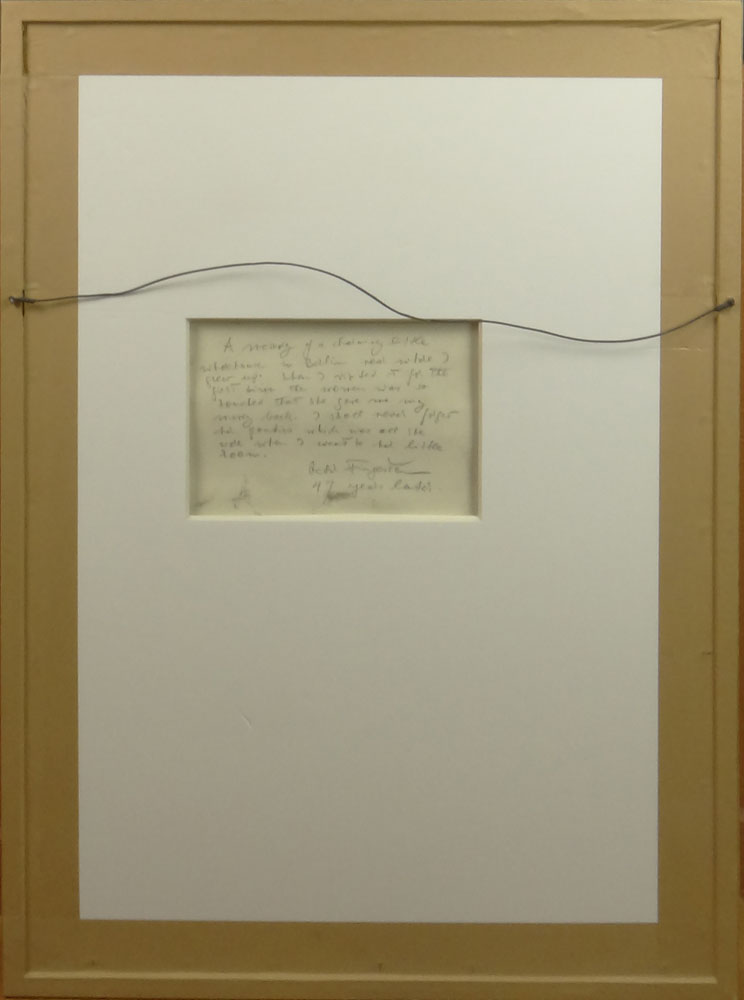 A memory of a charming little
whorehouse in Berlin near where I
grew up. When I visited it for the
first time the woman was so
touched that she gave me my
money back. I shall never forget
her panties which was all she
wore when I went to her little
room.
47 years later.